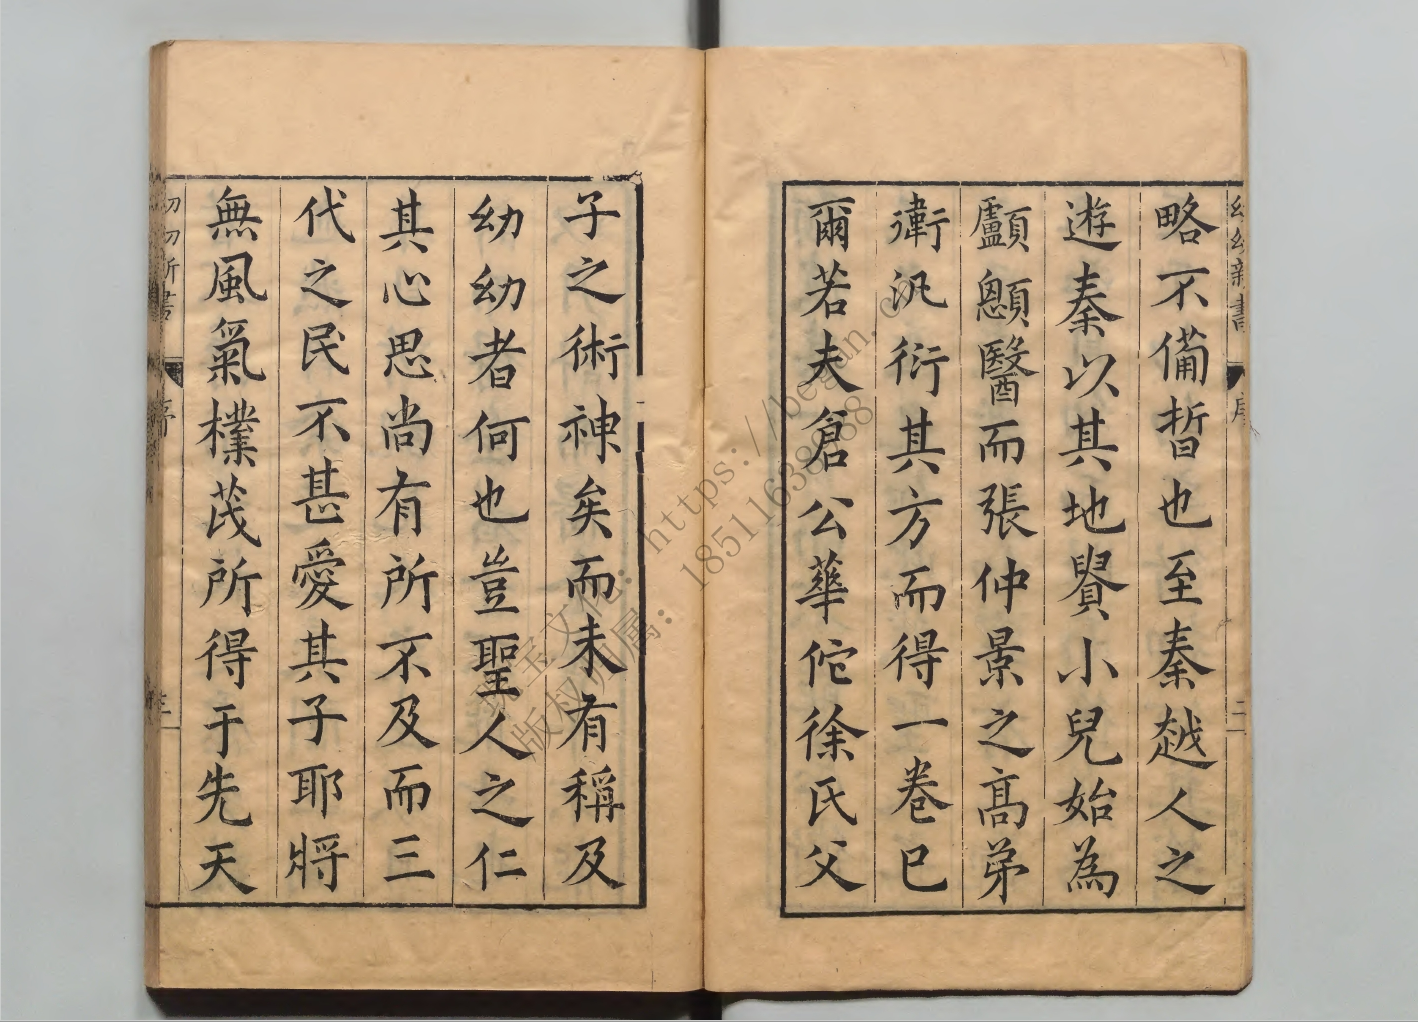 幼幼新書
序
二
略不備晢也至秦越人之
遊秦以其地貴小兒始為
顱顖醫而張仲景之高弟
衛汎衍其方而得一卷巳
爾若夫倉公華佗徐氏父
子之術神矣而未有稱及
幼幼者何也豈聖人之仁
其心思尚有所不及而三
代之民不甚愛其子耶將
無風氣樸茂所得于先天
書
三
https://began.c
版权归属：18511638988